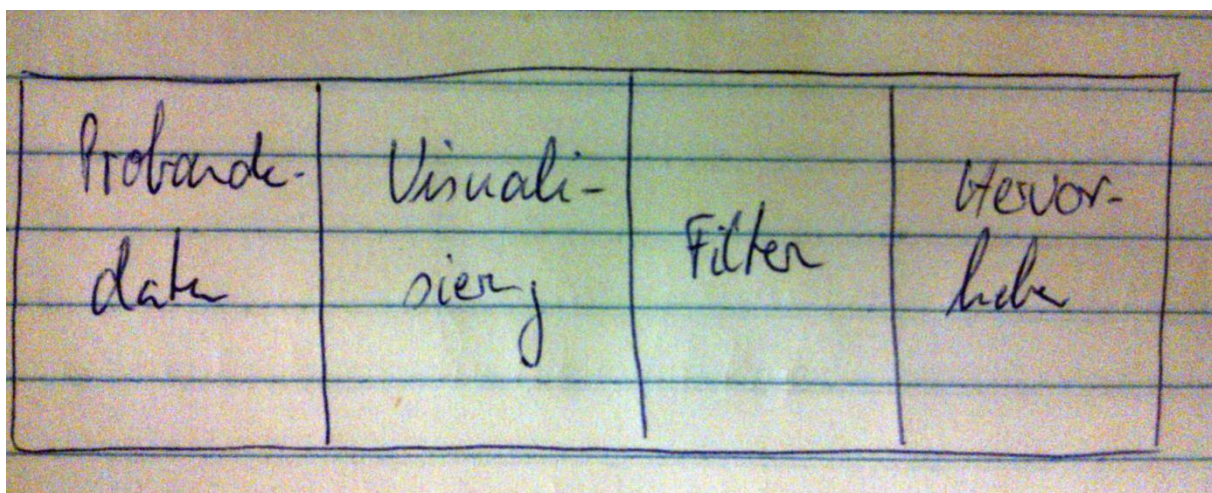 Probanden-
daten
Visuali-
sierung
Filter
Hervor-
heben